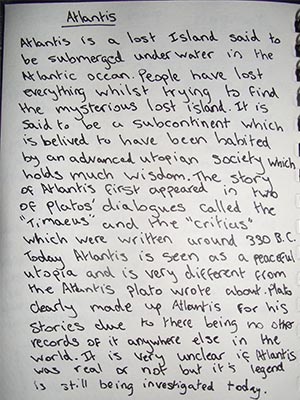 Atlantis
Atlantis is a lost Island said to
be submerged under water in the
Atlantic ocean. People have lost
everything whilst trying to find
the mysterious lost island. It is
said to be a subcontinent which
is belived to have been habited
by an advanced utopian society which
holds much wisdom. The story
of Atlantis first appeared in two
of Platos' dialogues called the
"Timaeus" and the "Critius"
which were written around 330 B.C.
Today Atlantis is seen as a peaceful
utopia and is very different from
the Atlantis Plato wrote about. Plato
clearly made up Atlantis for his
stories due to there being no other
records of it anywhere else in the
world. It is very unclear if Atlantis
was real or not but it's legend
is still being investigated today.